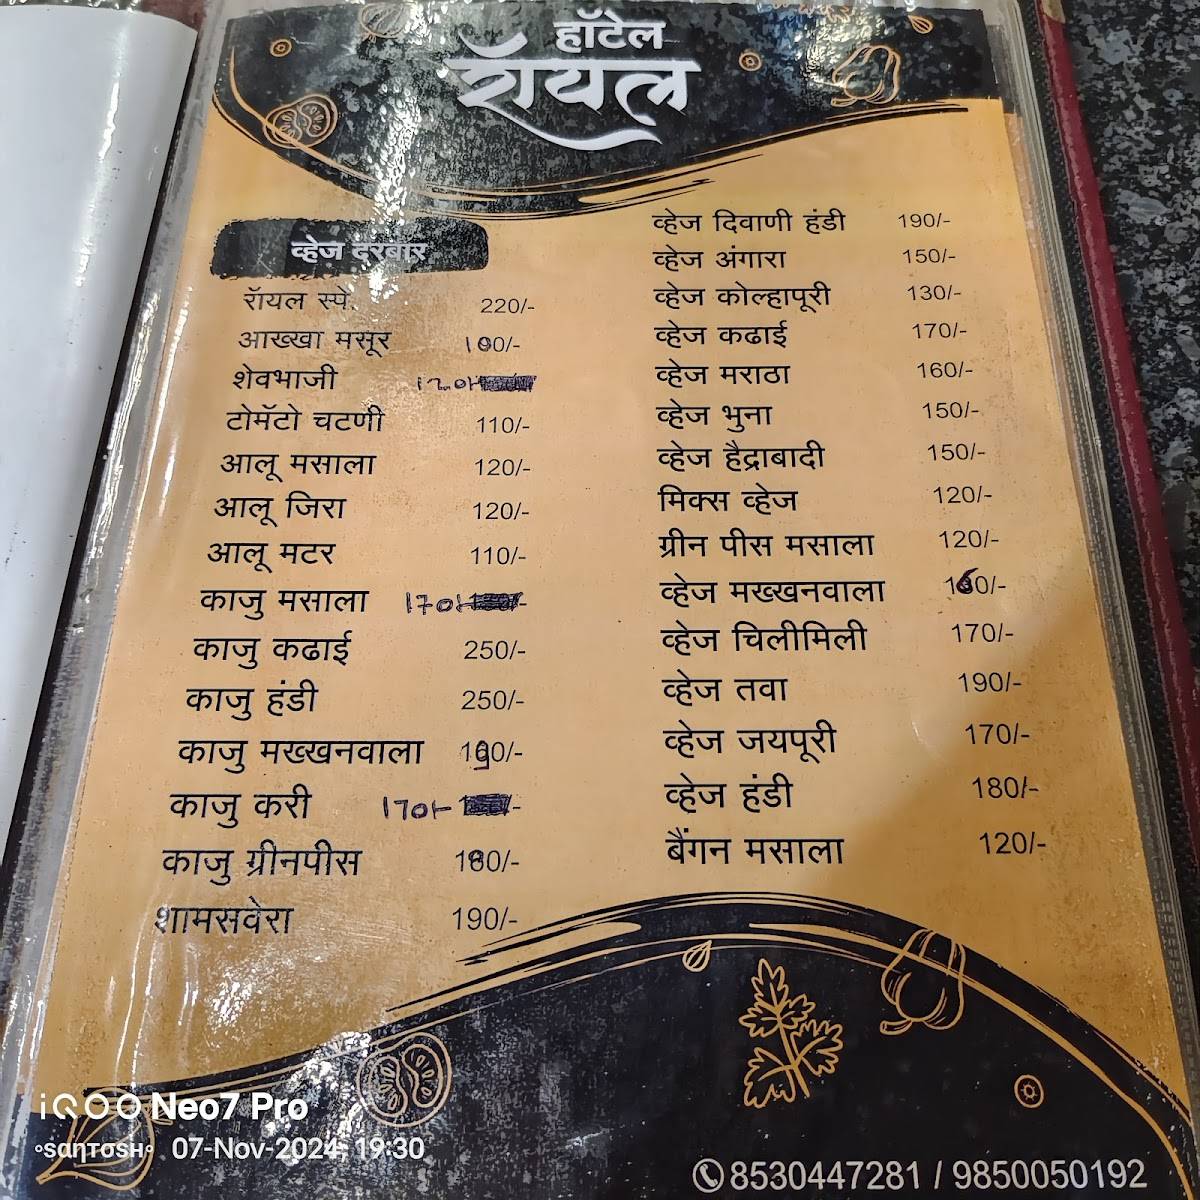 हॉटेल
रॉयल
व्हेज दरबार
रॉयल स्पे. 220/-
आख्खा मसूर 100/-
शेवभाजी 120/-
टोमॅटो चटणी 110/-
आलू मसाला 120/-
आलू जिरा 120/-
आलू मटर 110/-
काजु मसाला 170/-
काजु कढाई 250/-
काजु हंडी 250/-
काजु मख्खनवाला
काजु करी 170/-
काजु ग्रीनपीस 180/-
शामसवेरा 190/-
व्हेज दिवाणी हंडी 190/-
व्हेज अंगारा 150/-
व्हेज कोल्हापूरी 130/-
व्हेज कढाई 170/-
व्हेज मराठा 160/-
व्हेज भुना 150/-
व्हेज हैद्राबादी 150/-
मिक्स व्हेज 120/-
ग्रीन पीस मसाला 120/-
व्हेज मख्खनवाला 160/-
व्हेज चिलीमिली 170/-
व्हेज तवा 190/-
व्हेज जयपूरी 170/-
व्हेज हंडी 180/-
बैंगन मसाला 120/-
iQOO Neo7 Pro
°sαηтosн° 07-Nov-2024, 19:30
8530447281 / 9850050192